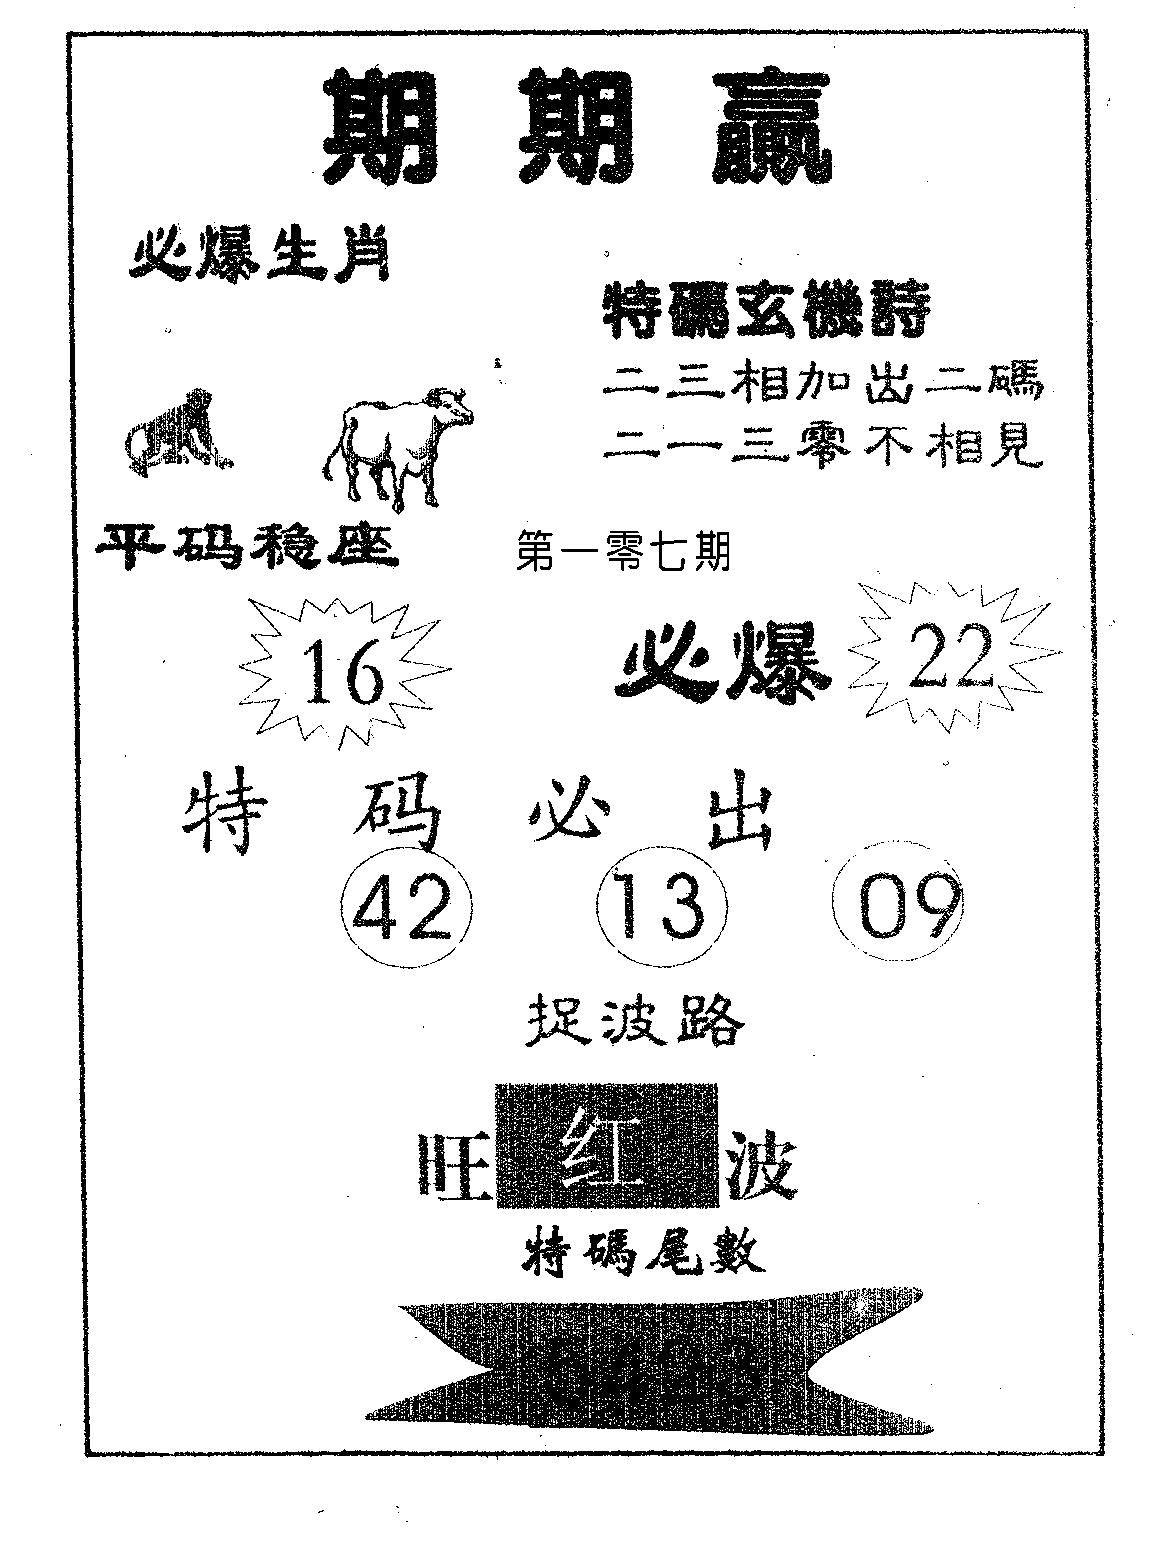 期期赢
必爆生肖
特碼玄機詩
二三相加出二碼
二一三零不相見
平码稳座
第一零七期
16
必爆 22
特码必出
42 13 09
捉波路
旺红波
特碼尾數